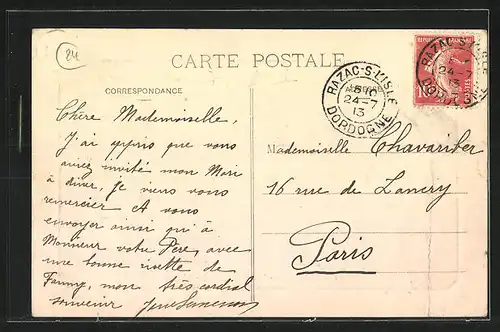 24
CARTE POSTALE
CORRESPONDANCE
RAZAC-S-L'ISLE
1810
24-7
13
DORDOGNE
RAZAC-S-L'ISLE
24-7
13
DORDOGNE
Chère Mademoiselle,
J'ai appris que vous
aviez invité mon Mari
à diner, je viens vous
remercier et vous
envoyer ainsi qu'à
Monsieur votre Père, avec
une bonne de
Fanny, mon très cordial
souvenir
Mademoiselle Chavariber
16 rue de Lancry
Paris